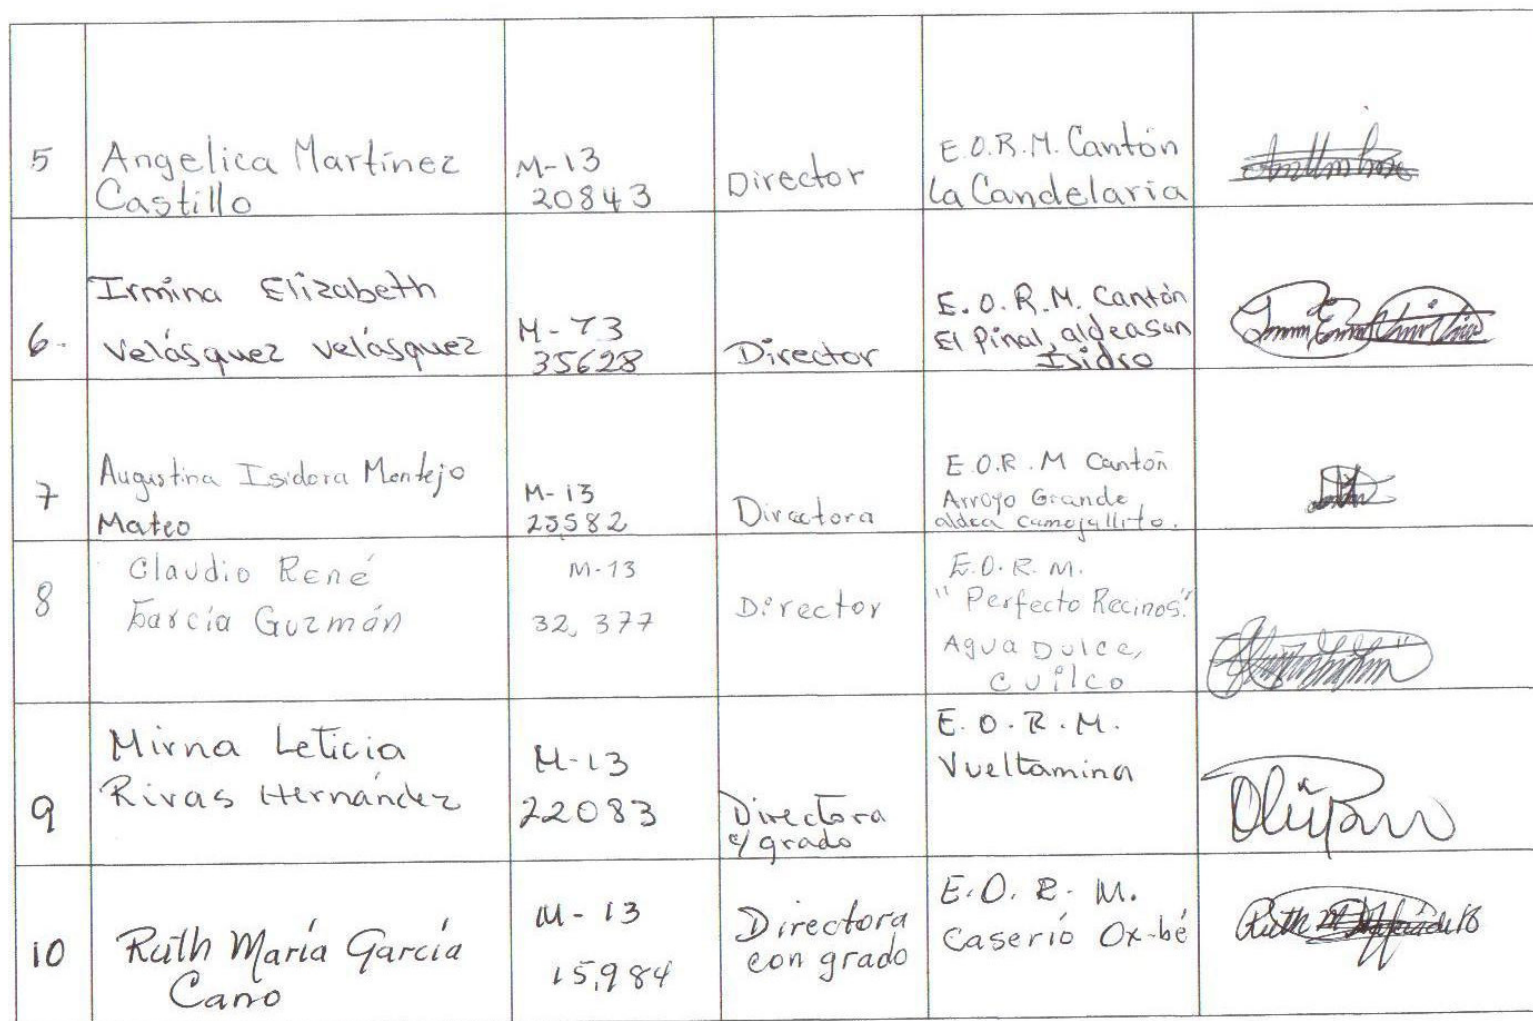 5
Angelica Martínez
Castillo
M-13
20843
Director
E.O.R.M. Cantón
La Candelaria
6.
Irmina Elizabeth
Velásquez Velásquez
M-13
35628
Director
E.O.R.M. Cantón
El Pinal, aldea San
Isidro
7
Augustina Isidora Montejo
Mateo
M-13
Directora
E.O.R.M Cantón
Arroyo Grande
aldea Camojallito.
8
Claudio René
García Guzmán
M-13
32,377
Director
E.O.R.M.
"Perfecto Recinos."
Agua Dulce,
Cuilco
9
Mirna Leticia
Rivas Hernández
M-13
22083
Directora
c/ grado
E.O.R.M.
Vueltamina
10
Ruth María García
Cano
M-13
15,984
Directora
con grado
E.O.R.M.
Caserío Ox-bé
Ruth